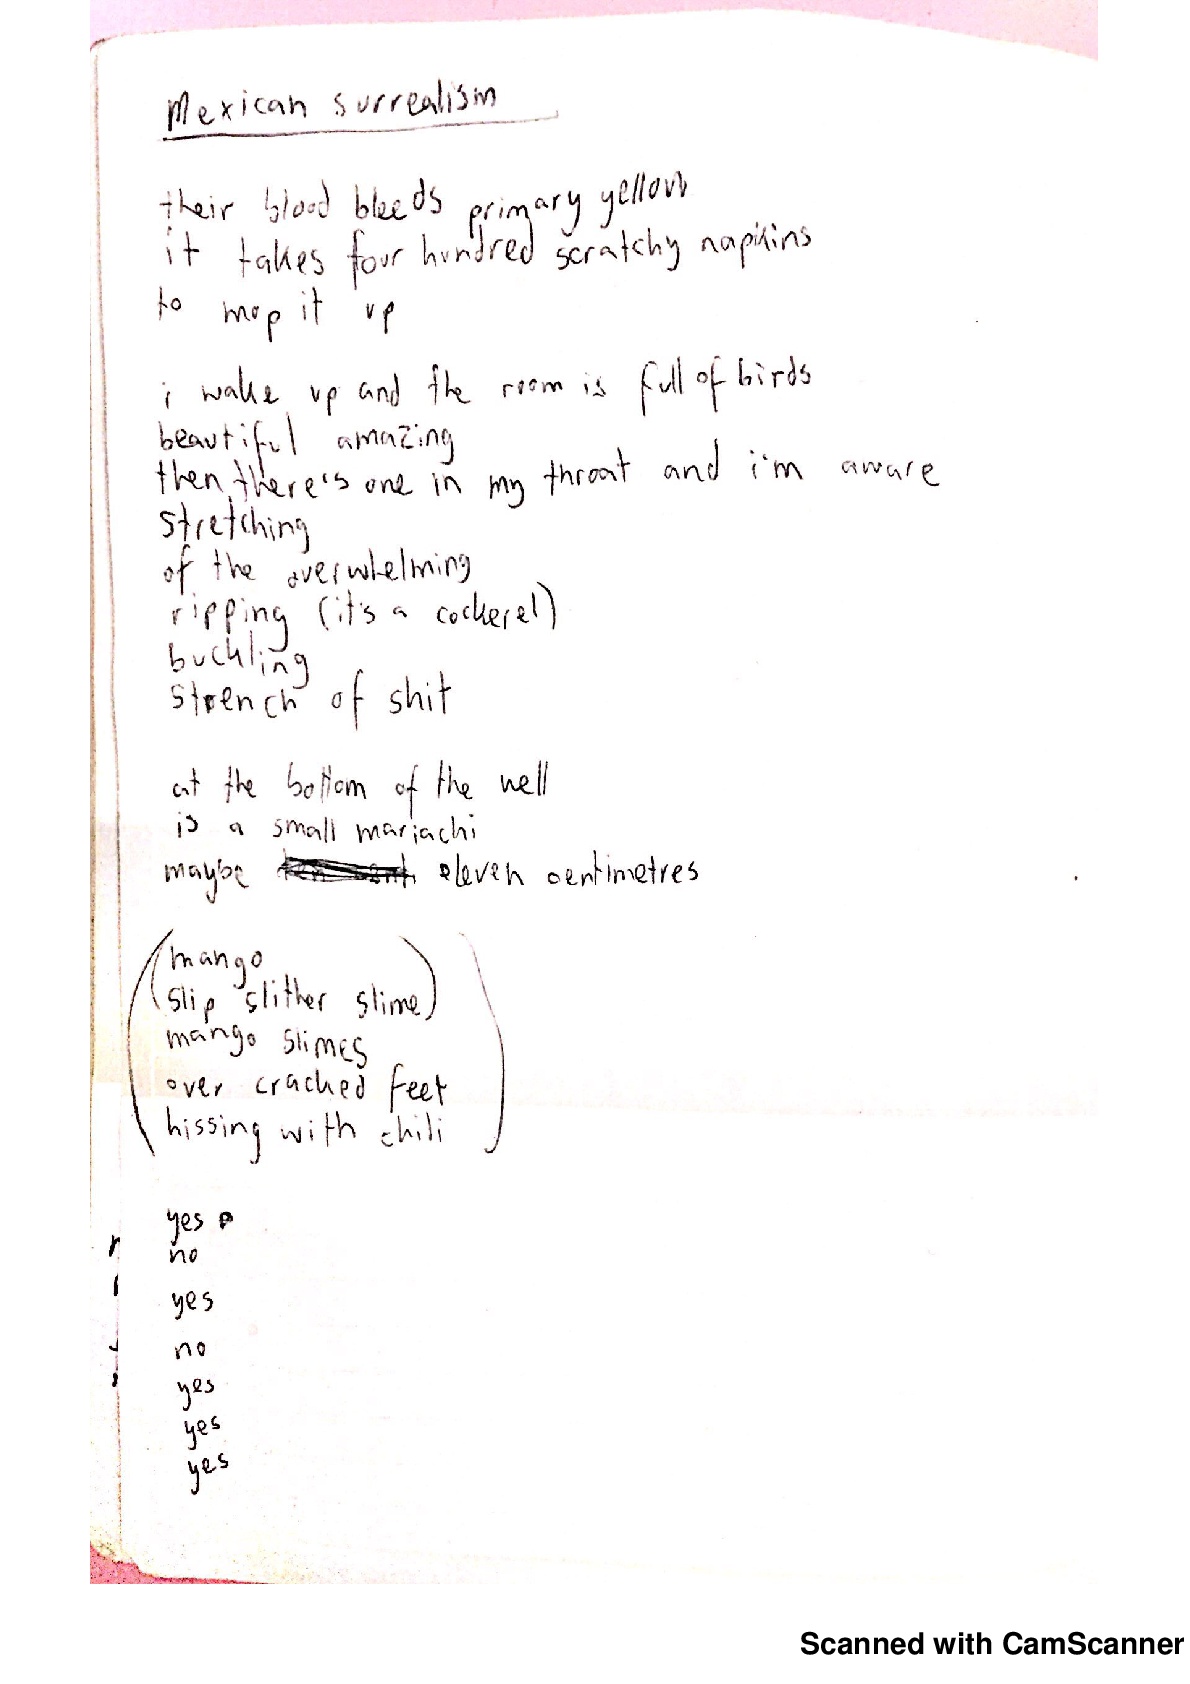 Mexican surrealism
their blood bleeds primary yellow
it takes four hundred scratchy napkins
to mop it up
i wake up and the room is full of birds
beautiful amazing
then there's one in my throat and i'm aware
stretching
of the overwhelming
ripping (it's a cockerel)
buckling
stench of shit
at the bottom of the well
is a small mariachi
maybe eleven centimetres
(mango
(slip slither slime)
mango slimes
over cracked feet
hissing with chili)
yes
no
yes
no
yes
yes
yes
Scanned with CamScanner